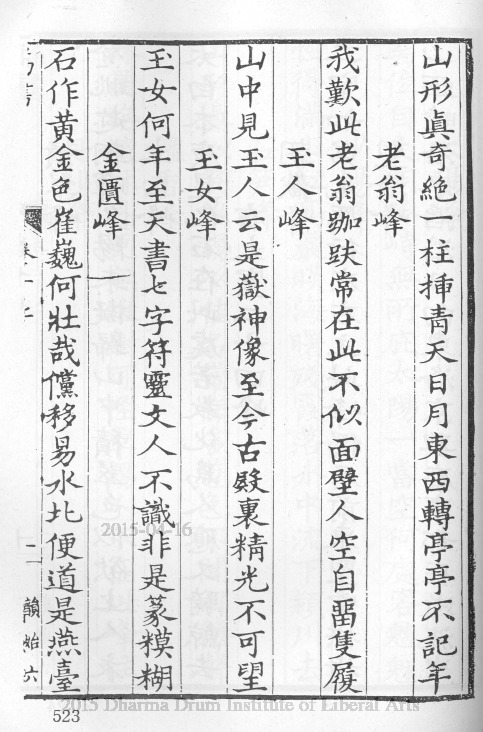 山形眞奇絶一柱揷靑天日月東西轉亭亭不記年
老翁峰
我歎此老翁跏趺常在此不似面壁人空自畱隻履
玉人峰
山中見玉人云是嶽神像至今古殿裏精光不可望
玉女峰
玉女何年至天書七字符靈文人不識非是篆糢糊
金匱峰
石作黃金色崔巍何壯哉儻移易水北便道是燕臺
卷一
二
523
2015-04-16
2015 Dharma Drum Institute of Liberal Arts